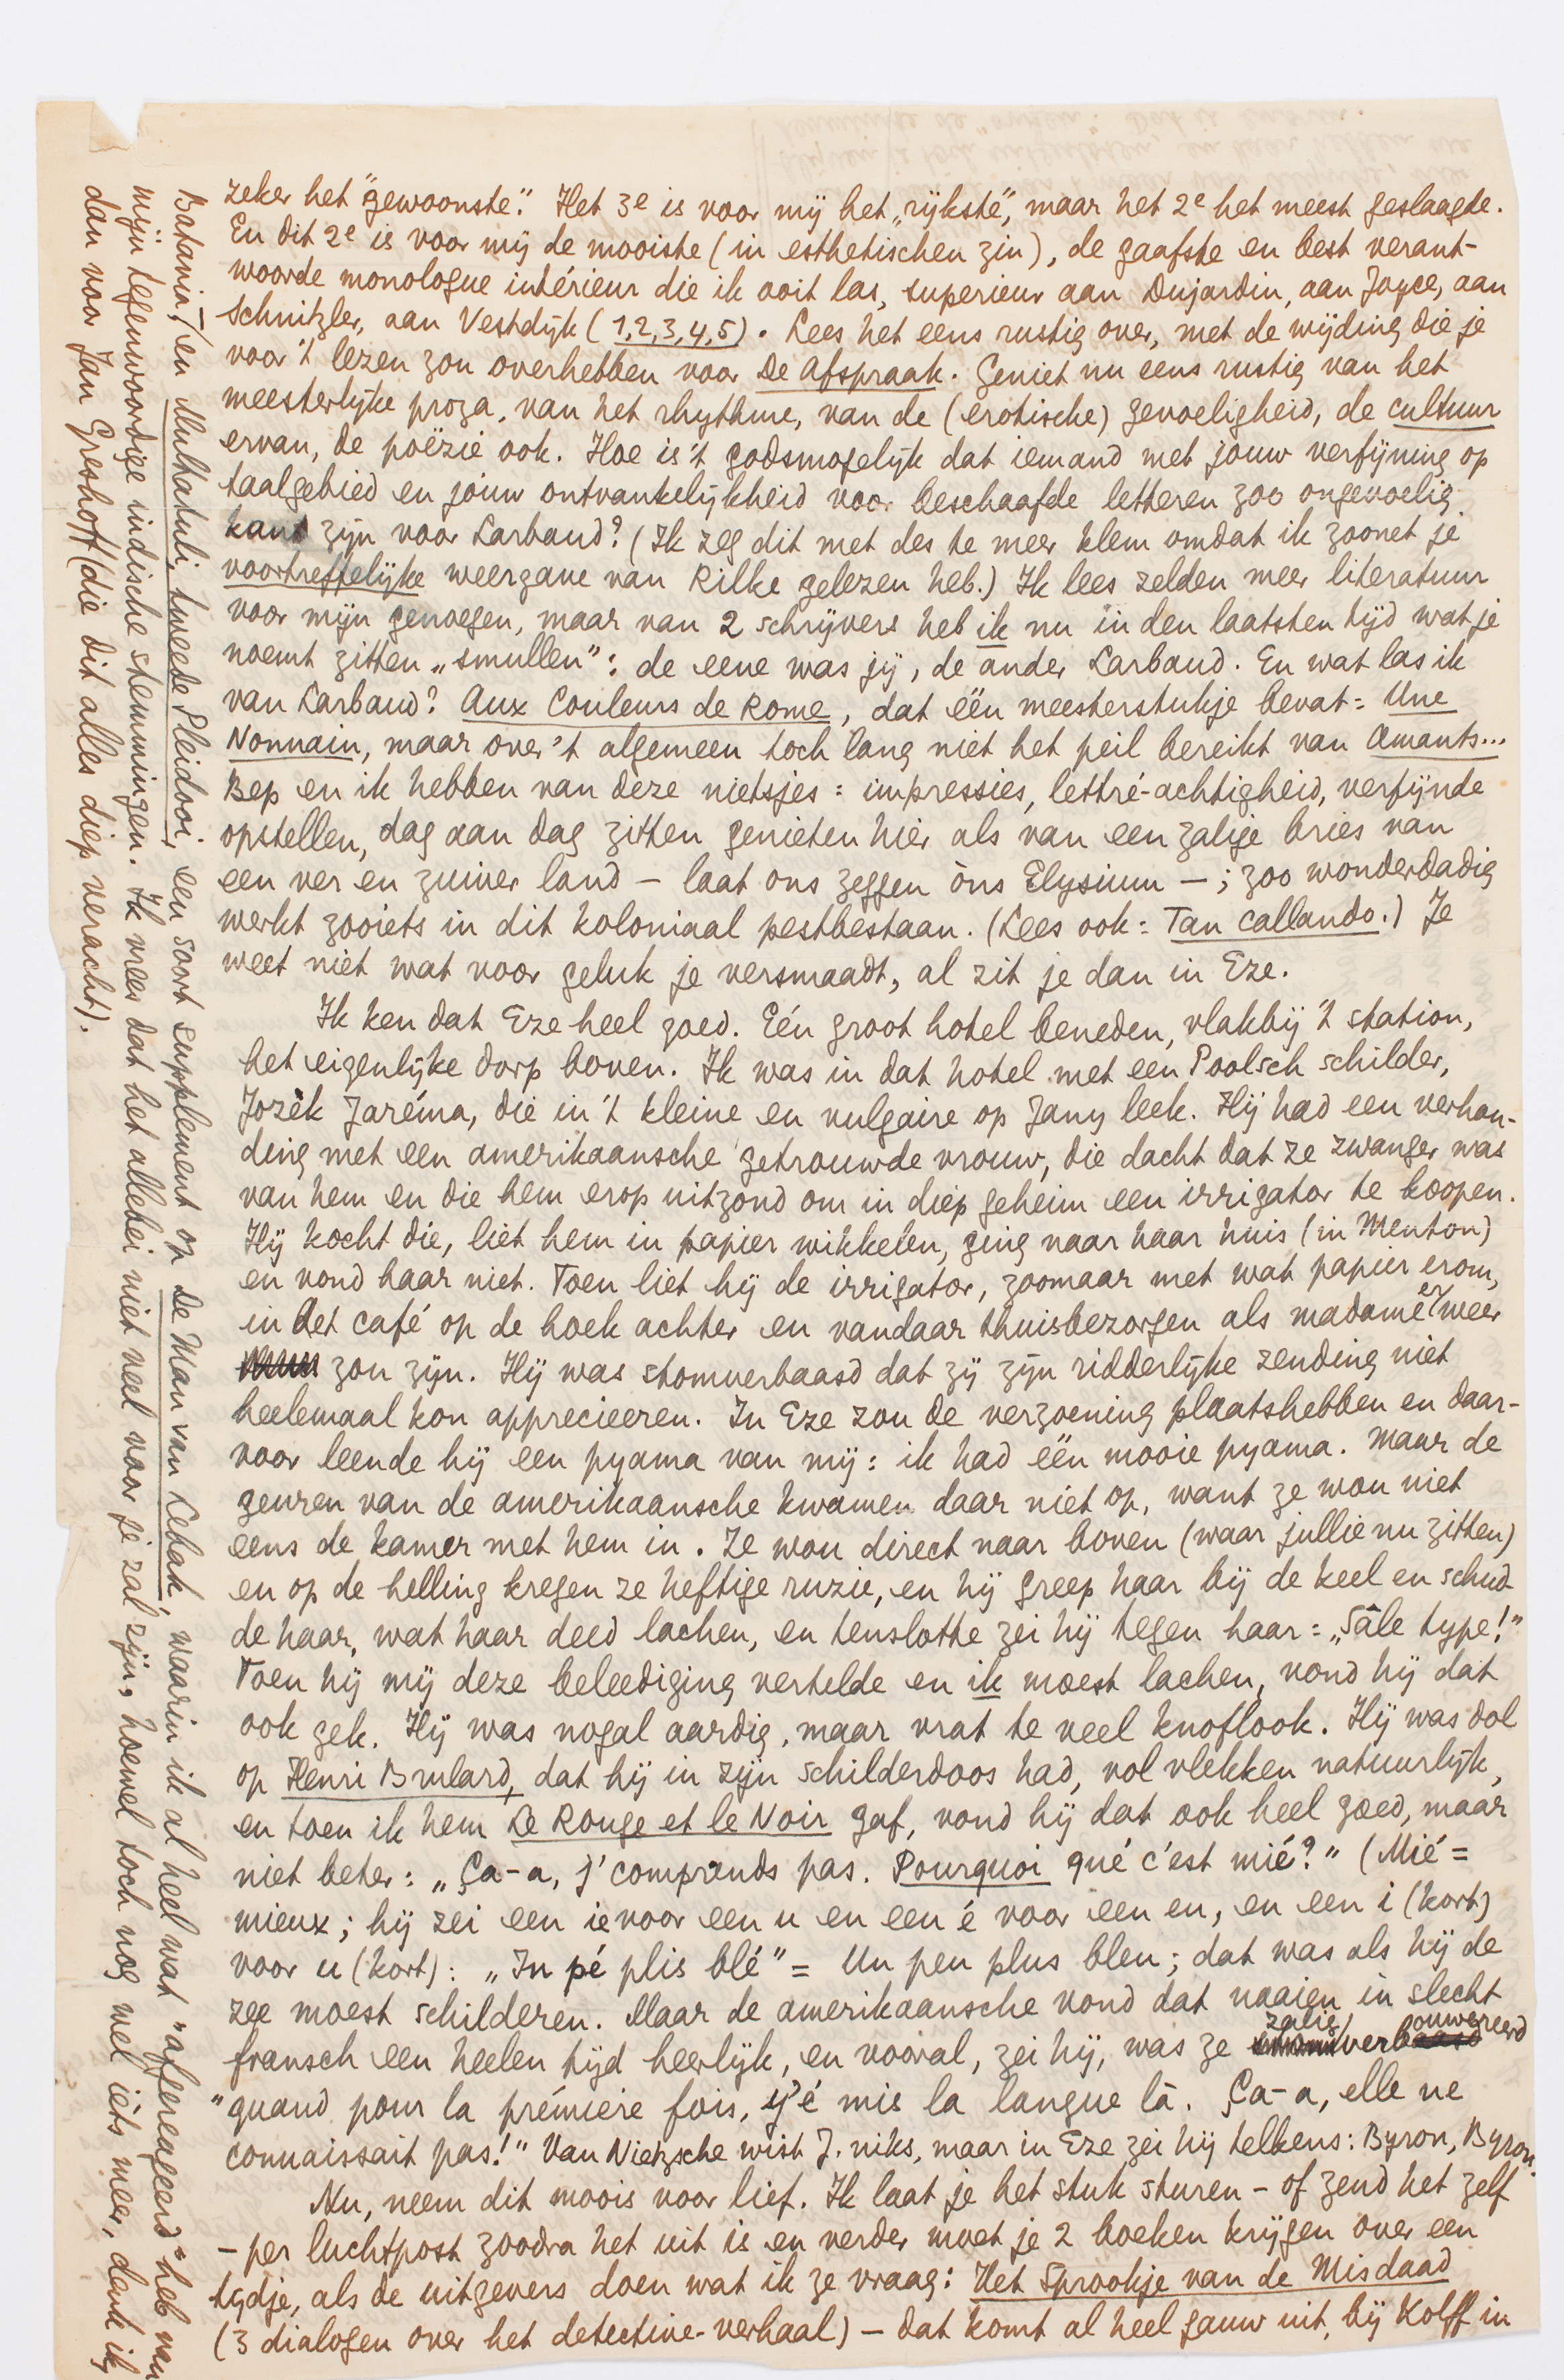 zeker het "gewoonste". Het 3e is voor mij het „rijkste", maar het 2e het meest geslaagde.
En dit 2e is voor mij de mooiste (in esthetischen zin), de gaafste en best verant-
woorde monologue intérieur die ik ooit las, superieur aan Dujardin, aan Joyce, aan
Schnitzler, aan Vestdijk (1,2,3,4,5). Lees het eens rustig over, met de wijding die je
voor 't lezen zou overhebben voor De Afspraak. Geniet nu eens rustig van het
meesterlijke proza, van het rhythme, van de (erotische) gevoeligheid, de cultuur
ervan, de poëzie ook. Hoe is 't godsmogelijk dat iemand met jouw verfijning op
taalgebied en jouw ontvankelijkheid voor beschaafde letteren zoo ongevoelig
kant zijn voor Larbaud? (Ik zeg dit met des te meer klem omdat ik zoonet je
voortreffelijke weergave van Rilke gelezen heb.) Ik lees zelden meer literatuur
voor mijn genoegen, maar van 2 schrijvers heb ik nu in den laatsten tijd wat je
noemt zitten „smullen": de eene was jij, de ander Larbaud. En wat las ik
van Larbaud? Aux Couleurs de Rome, dat één meesterstukje bevat: Une
Nonnain, maar over 't algemeen toch lang niet het peil bereikt van Amants...
Bep en ik hebben van deze nietsjes: impressies, lettré-achtigheid, verfijnde
opstellen, dag aan dag zitten genieten hier als van een zalige bries van
een ver en zuiver land – laat ons zeggen òns Elysium –; zoo wonderdadig
werkt zooiets in dit koloniaal pestbestaan. (Lees ook: Tan callando.) Je
weet niet wat voor geluk je versmaadt, al zit je dan in Eze.
Ik ken dat Eze heel goed. Eén groot hotel beneden, vlakbij 't station,
het eigenlijke dorp boven. Ik was in dat hotel met een Poolsch schilder,
Jozèk Jaréma, die in 't kleine en vulgaire op Jany leek. Hij had een verhou-
ding met een amerikaansche getrouwde vrouw, die dacht dat ze zwanger was
van hem en die hem erop uitzond om in diep geheim een irrigator te koopen.
Hij kocht die, liet hem in papier wikkelen, ging naar haar huis (in Menton)
en vond haar niet. Toen liet hij de irrigator, zoomaar met wat papier erom,
in het café op de hoek achter en vandaar thuisbezorgen als madame er weer
zou zijn. Hij was stomverbaasd dat zij zijn ridderlijke zending niet
heelemaal kon apprecieeren. In Eze zou de verzoening plaatshebben en daar-
voor leende hij een pyama van mij: ik had één mooie pyama. Maar de
geuren van de amerikaansche kwamen daar niet op, want ze wou niet
eens de kamer met hem in. Ze wou direct naar boven (waar jullie nu zitten)
en op de helling kregen ze heftige ruzie, en hij greep haar bij de keel en schud-
de haar, wat haar deed lachen, en tenslotte zei hij tegen haar: „Sâle type!"
Toen hij mij deze beleediging vertelde en ik moest lachen, vond hij dat
ook gek. Hij was nogal aardig, maar vrat te veel knoflook. Hij was dol
op Henri Brulard, dat hij in zijn schilderdoos had, vol vlekken natuurlijk,
en toen ik hem Le Rouge et le Noir gaf, vond hij dat ook heel goed, maar
niet beter: „Ça-a, j'comprends pas. Pourquoi qué c'est mié?" (Mié =
mieux; hij zei een ie voor een u en een é voor een eu, en een i (kort)
voor u (kort): „In pé plis blé" = Un peu plus bleu; dat was als hij de
zee moest schilderen. Maar de amerikaansche vond dat naaien in slecht
fransch een heelen tijd heerlijk, en vooral, zei hij, was ze zalig verbouwereerd
"quand pour la prémière fois, y'é mis la langue là. Ça-a, elle ne
connaissait pas!" Van Nietzsche wist J. niks, maar in Eze zei hij telkens: Byron, Byron.
Nu, neem dit moois voor lief. Ik laat je het stuk sturen – of zend het zelf
– per luchtpost zoodra het uit is en verder moet je 2 boeken krijgen over een
tijdje, als de uitgevers doen wat ik ze vraag: Het Sprookje van de Misdaad
(3 dialogen over het detective-verhaal) – dat komt al heel gauw uit, bij Kolff in
Batavia, – en Multatuli, tweede Pleidooi, een soort supplement op De Man van Lebak, waarin ik al heel wat "afgereageerd" heb van
mijn tegenwoordige indische stemmingen. Ik vrees dat het allebei niet veel voor je zal zijn, hoewel toch nog wel iets meer, denk ik,
dan voor Jan Greshoff (die dit alles diep veracht).